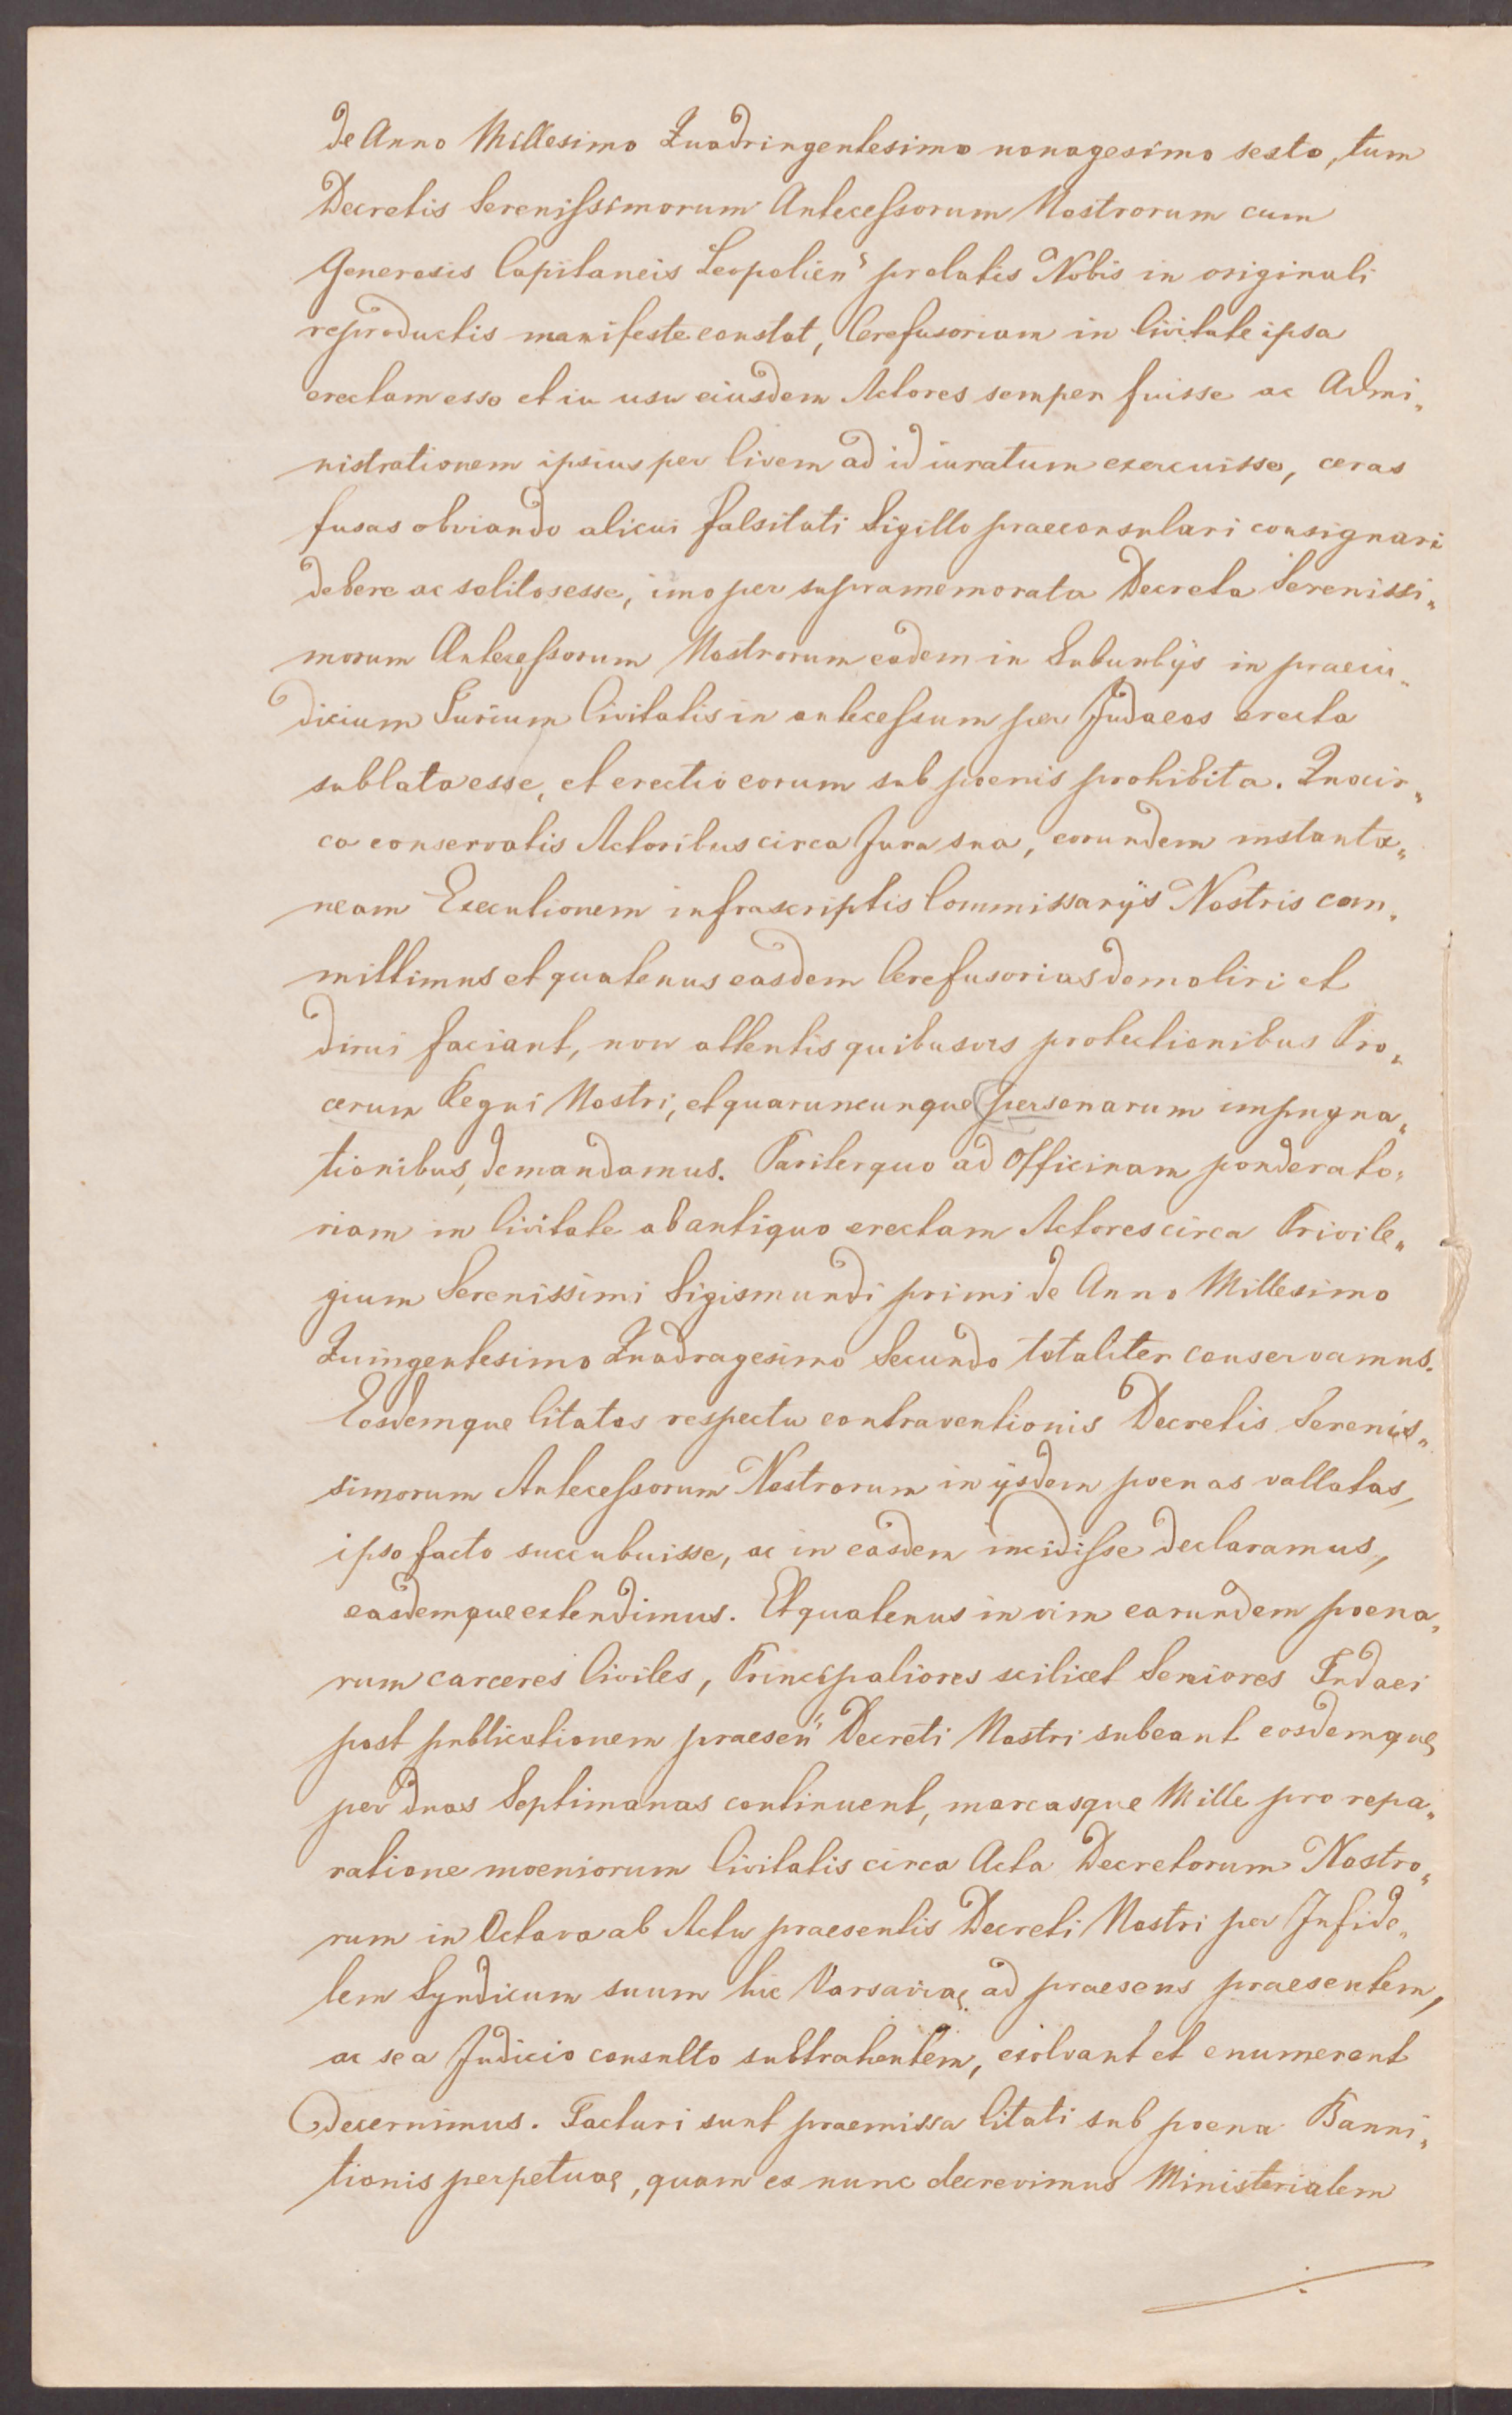 de Anno Millesimo Quadringentesimo nonagesimo sexto, tum
Decretis Serenissimorum Antecessorum Nostrorum cum
Generosis Capitaneis Leopolien" prolatis Nobis in originali
reproductis manifeste constat, Cerefusoriam in Civitate ipsa
erectam esse et in usu eiusdem Actores semper fuisse ac Admi„
nistrationem ipsius per Civem ad id iuratum exercuisse, ceras
fusas obviando alicui falsitati Sigillo praeconsulari consignari
debere ac solitos esse, imo per supramemorata Decreta Serenissi„
morum Antecessorum Nostrorum eadem in Suburbijs in praeiu„
dicium Iurium Civitatis in antecessum per Judaeos erecta
sublata esse, et erectio eorum sub poenis prohibita. Quocir„
ca conservatis Actoribus circa Jura sua, eorundem instanta„
neam Executionem infrascriptis Commissarijs Nostris com„
mittimus et quatenus easdem Cerefusorias demoliri et
dirui faciant, non attentis quibusvis protectionibus Pro„
cerum Regni Nostri, et quaruncunque personarum impugna„
tionibus, demandamus. Pariterquo ad Officinam ponderato„
riam in Civitate ab antiquo erectam Actores circa Privile„
gium Serenissimi Sigismundi primi de Anno Millesimo
Quingentesimo Quadragesimo Secundo totaliter conservamus.
Eosdemque Citatos respectu contraventionis Decretis Serenis„
simorum Antecessorum Nostrorum in ijsdem poenas vallatas,
ipso facto succubuisse, ac in easdem incidisse declaramus,
easdemque extendimus. Et quatenus in vim earundem poena„
rum carceres Civiles, Principaliores scilicet Seniores Iudaei
post publicationem praesen" Decreti Nostri subeant eosdemque
per duas Septimanas continuent, marcasque Mille pro repa„
ratione moeniorum Civitatis circa Acta Decretorum Nostro„
rum in Octava ab Actu praesentis Decreti Nostri per Infide„
lem Syndicum suum hic Varsaviae ad praesens praesentem,
ac se a Judicio consulto subtrahentem, exolvant et enumerent
decernimus. Facturi sunt praemissa Citati sub poena Banni„
tionis perpetuae, quam ex nunc decrevimus Ministerialem